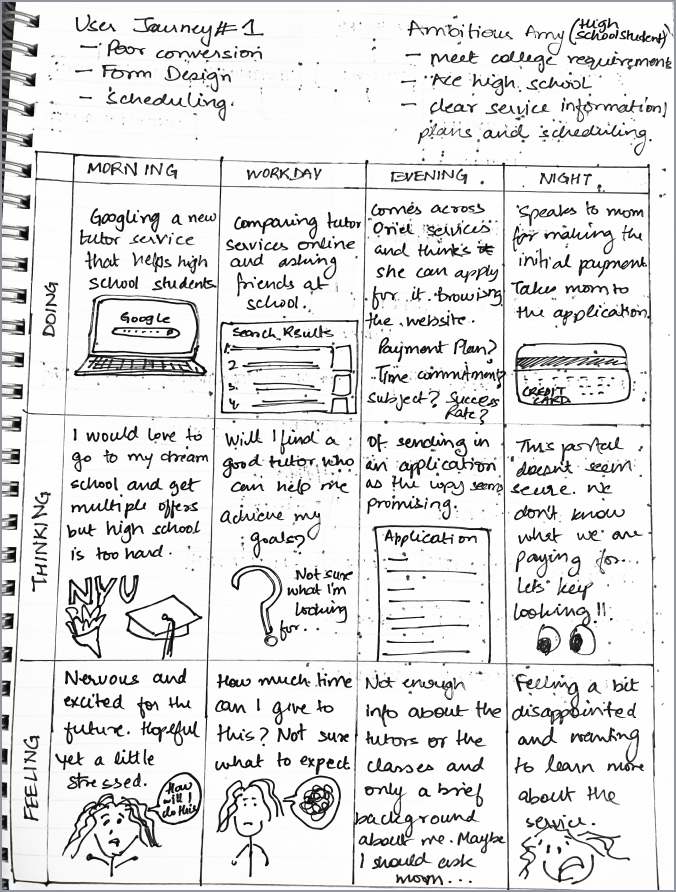 User Journey #1
– Poor conversion
– Form Design
– Scheduling.
Ambitious Amy (High
school student)
– meet college requirements
– Ace high school
– clear service information,
plans and scheduling.
MORNING
WORKDAY
EVENING
NIGHT
DOING
Googling a new
tutor service
that helps high
school students
Google
Comparing tutor
services online
and asking
friends at
school.
Search Results
1.
2
3.
4.
comes across
Oriel services
and thinks
she can apply
for it. browsing
the website.
Payment Plan?
Time commitment?
subject? Success
Rate?
Speaks to mom
for making the
initial payment
Takes mom to
the application
CREDIT
CARD
THINKING
I would love to
go to my dream
school and get
multiple offers
but high school
is too hard.
NYU
Will I find a
good tutor who
can help me
achieve my
goals?
?
Not sure
what I'm
looking
for...
Of sending in
an application
as the way seems
promising.
Application
This portal
doesnt seem
secure. we
don't know
what we are
paying for...
lets' keep
looking!!
FEELING
Nervous and
excited for the
future. Hopeful
yet a little
stressed.
How
will I
do this
How much time
can I give to
this? Not sure
what to expect
Not enough
info about the
tutors or the
classes and
only a brief
background
about me. Maybe
I should ask
mom...
Feeling a bit
disappointed
and wanting
to learn more
about the
service.